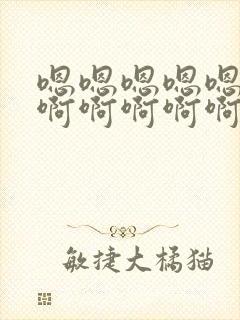 嗯嗯嗯嗯嗯
啊啊啊啊啊
敏捷大橘猫